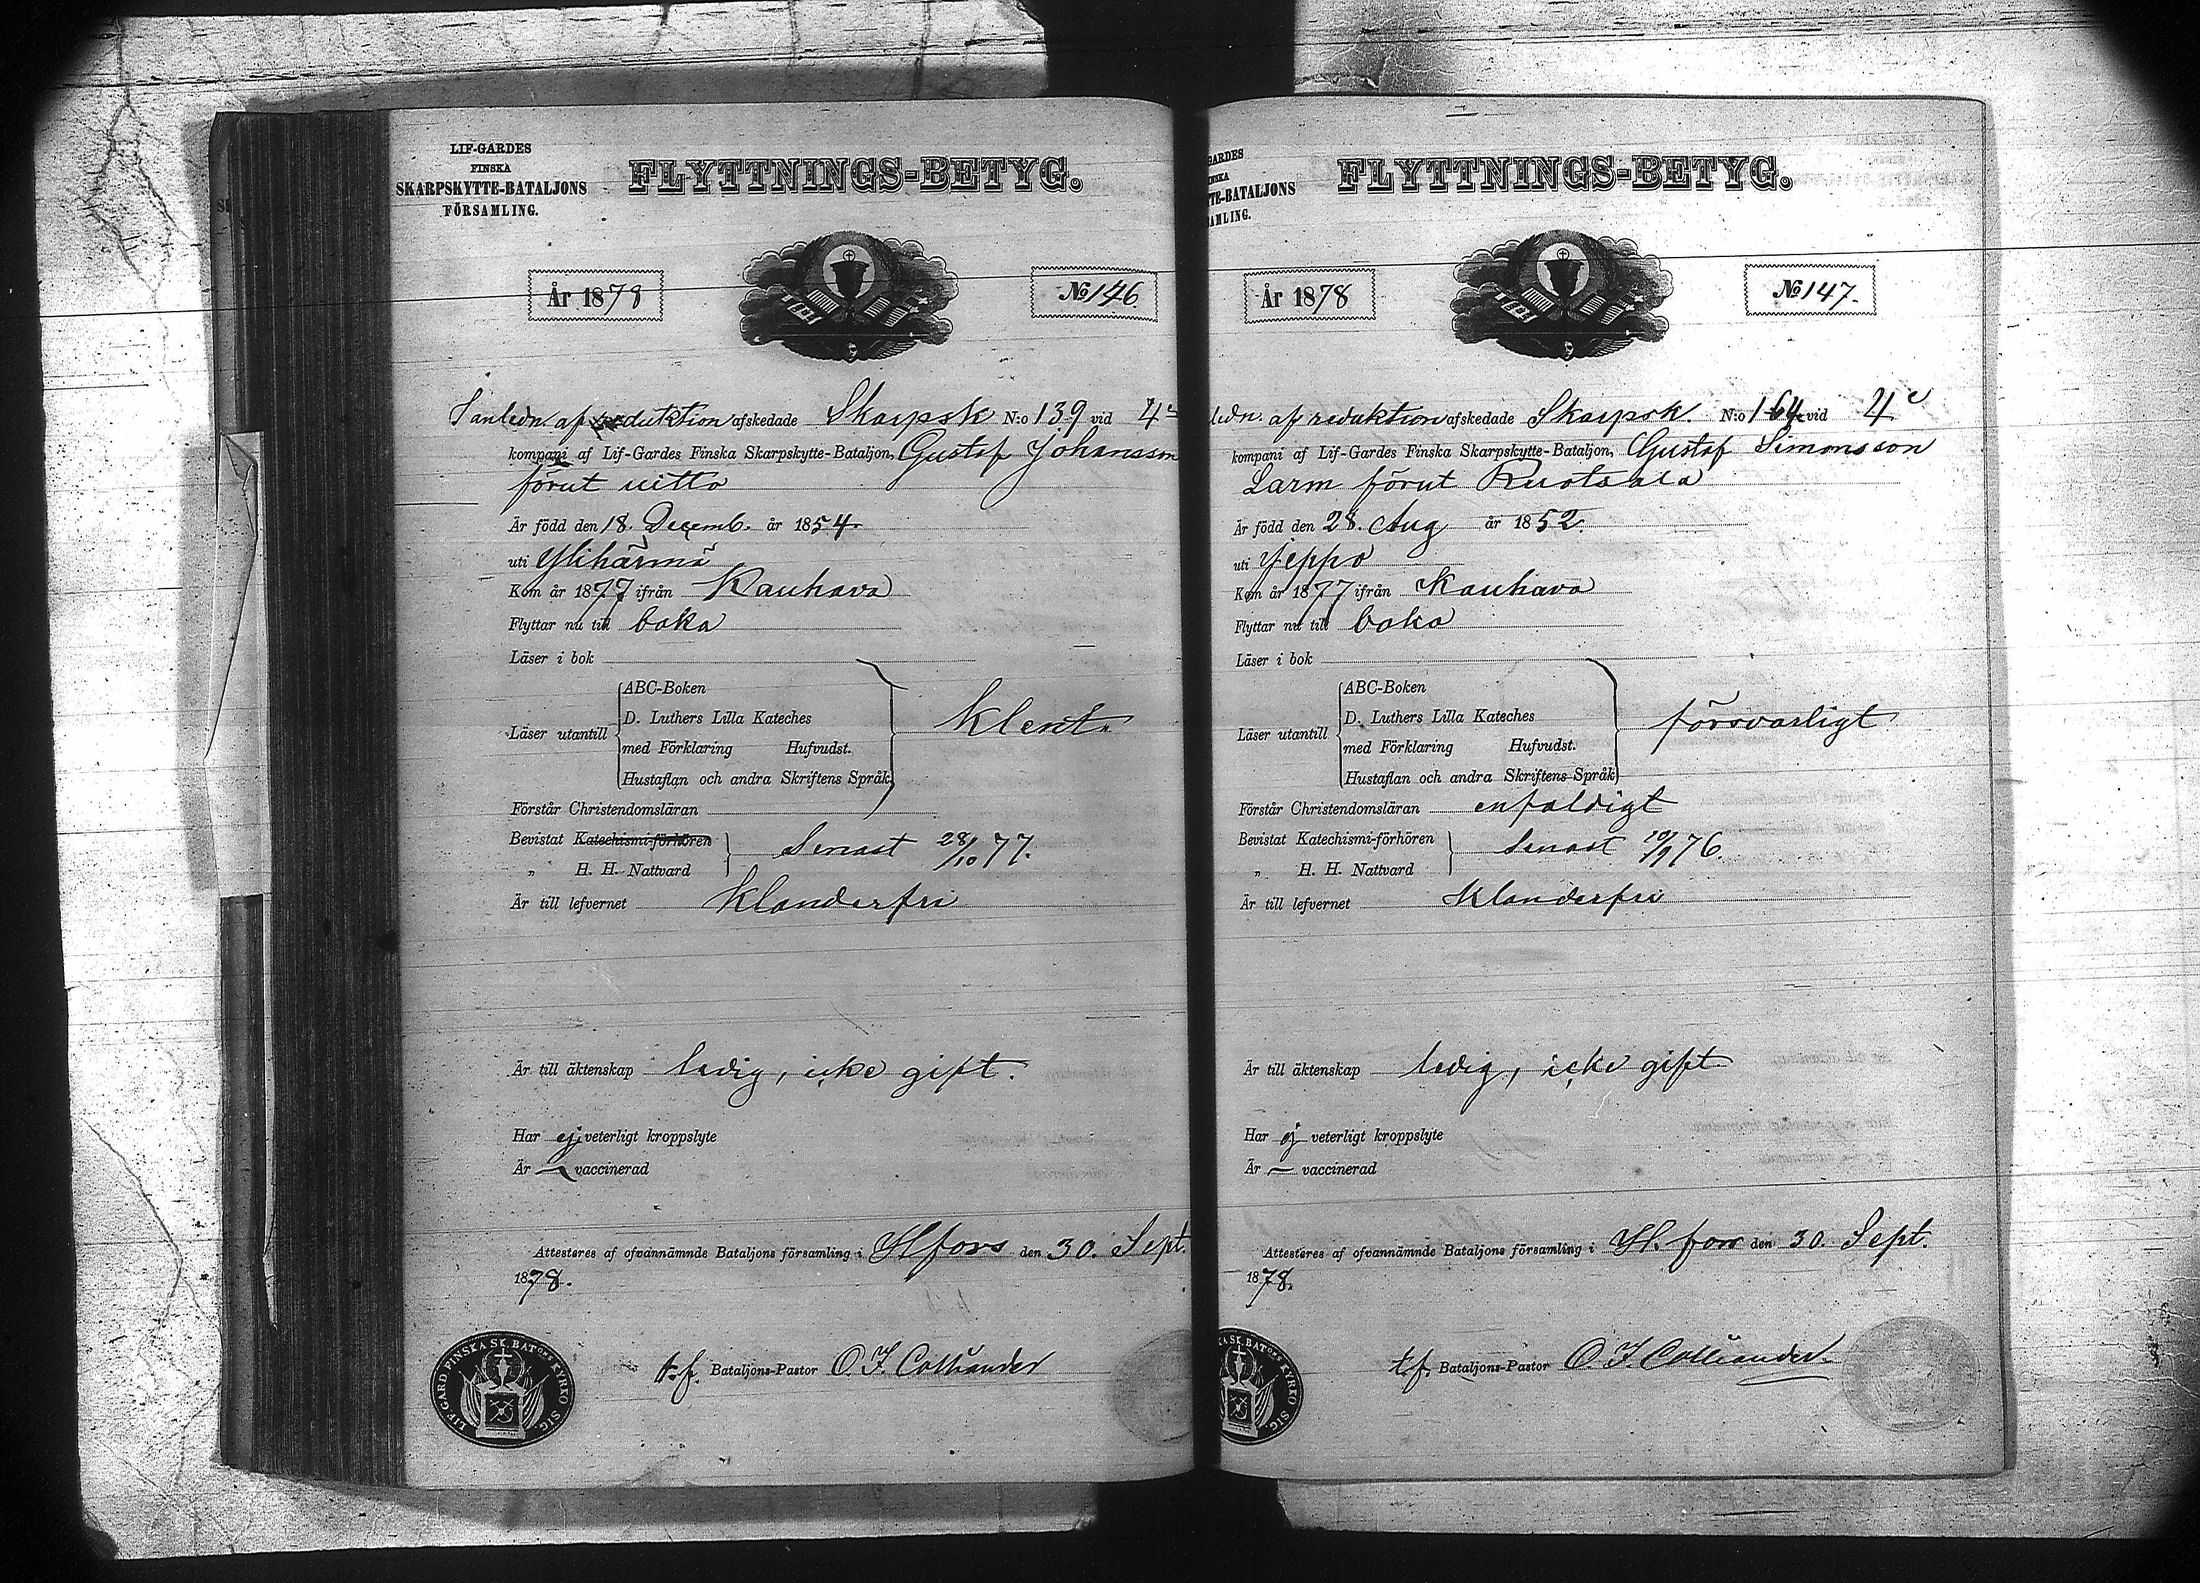 LIF-GARDES
FINSKA
SKARPSKYTTE-BATALJONS
FÖRSAMLING.
FLYTTNINGS-BETYG.
År 1878
No 146
I anledn. af reduktion afskedade Skarpsk N:o 139 vid 4e
kompani af Lif-Gardes Finska Skarpskytte-Bataljon, Gustaf Johansson
förut
Är född den 18. Decemb. år 1854.
uti Ylihärmä
Kom år 1877 ifrån Kauhava
Flyttar nu till
Läser i bok
ABC-Boken
D. Luthers Lilla Kateches
Läser utantill
med Förklaring Hufvudst.
Hustaflan och andra Skriftens Språk
klent.
Förstår Christendomsläran
Bevistat Katechismi-förhören
„ H. H. Nattvard
Senast 28/10 77.
Är till lefvernet klanderfri
Är till äktenskap ledig, icke gift.
Har ej veterligt kroppslyte
Är — vaccinerad
Attesteres af ofvannämnde Bataljons församling i Hfors den 30. Sept.
1878.
t.f. Bataljons-Pastor O. F. Colliander
LIF-GARD. FINSKA SK. BATONS KYRKO SIG.
GARDES
INSKA
TTE-BATALJONS
AMLING.
FLYTTNINGS-BETYG.
År 1878
No 147.
ledn. af reduktion afskedade Skarpsk. N:o 164 vid 4e
kompani af Lif-Gardes Finska Skarpskytte-Bataljon, Gustaf Simonsson
Larm förut Ruotsala
Är född den 28. Aug år 1852.
uti Jeppo
Kom år 1877 ifrån Kauhava
Flyttar nu till
Läser i bok
ABC-Boken
D. Luthers Lilla Kateches
Läser utantill
med Förklaring Hufvudst.
Hustaflan och andra Skriftens Språk
försvarligt
Förstår Christendomsläran enfaldigt
Bevistat Katechismi-förhören
„ H. H. Nattvard
Senast 10/9 76.
Är till lefvernet klanderfri
Är till äktenskap ledig, icke gift
Har ej veterligt kroppslyte
Är — vaccinerad
Attesteres af ofvannämnde Bataljons församling i H.fors den 30. Sept.
1878.
t.f. Bataljons-Pastor O. F. Colliander.
KA SK. BATONS KYRKO SIG.